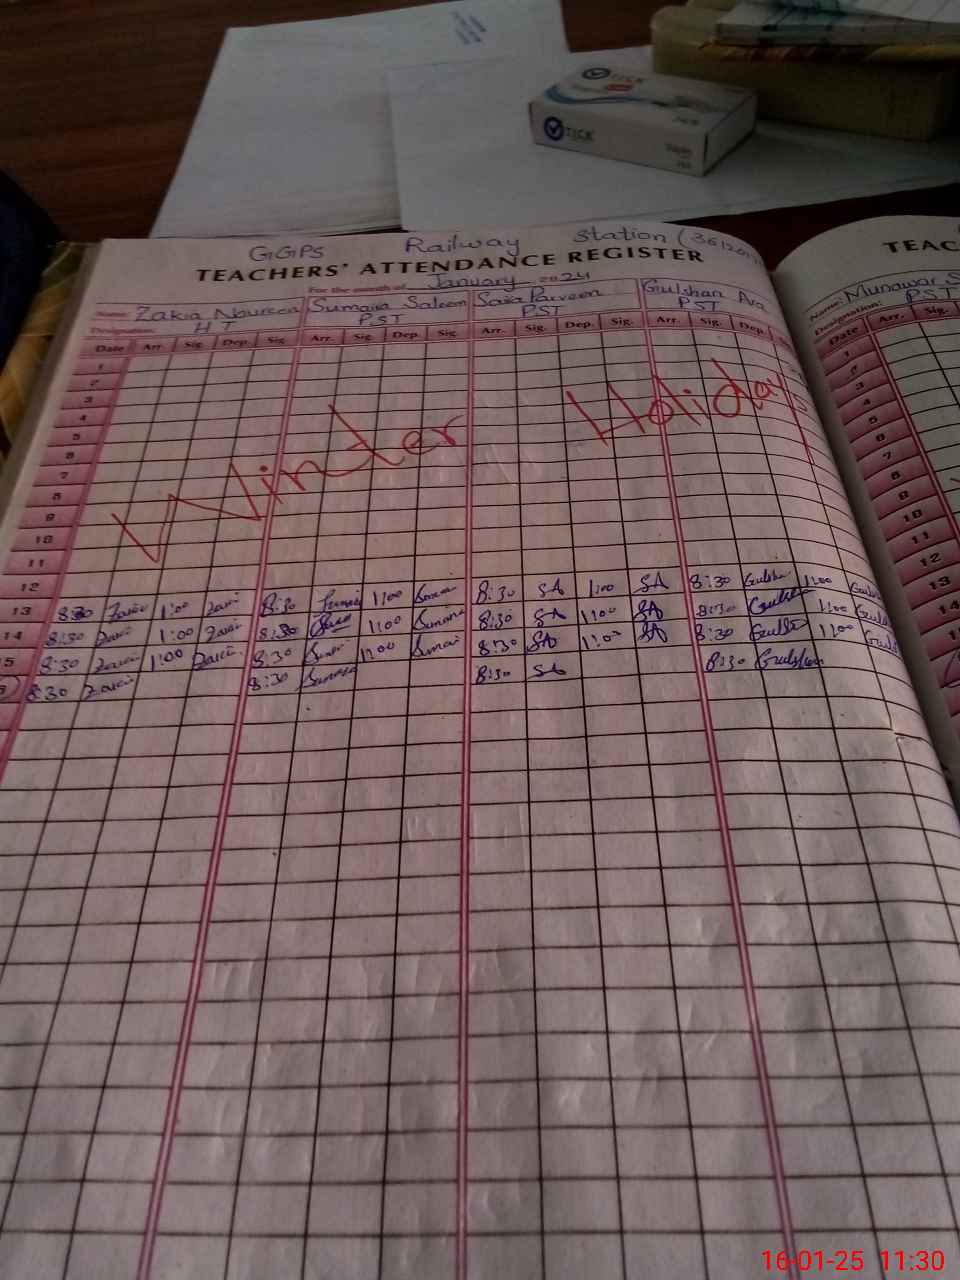 TICK
TICK
GGPS Railway Station (361201
TEACHERS' ATTENDANCE REGISTER
For the month of January 2024
Name: Zakia Noureen Sumaira Saleem Saira Parveen Gulshan Ara
Designation: H T P.S.T P.S.T P.S.T
Date Arr. Sig. Dep. Sig. Arr. Sig. Dep. Sig. Arr. Sig. Dep. Sig. Arr. Sig. Dep.
1
2
3
4
5
6
7
8
9
10
11
12
Winter Holidays
13 8:30 1:00 8:30 1:00 8:30 SA 1:00 SA 8:30 Gulshan 1:00
14 8:30 1:00 8:30 1:00 8:30 SA 1:00 SA 8:30 Gulshan 1:00
15 8:30 1:00 8:30 1:00 8:30 SA 1:00 SA 8:30 1:00
8:30 8:30 8:30 SA 8:30 Gulshan
TEAC
Name: Munawar S
Designation: P.S.T
Date Arr. Sig.
1
2
3
4
5
6
7
8
9
10
11
12
13
14
16-01-25 11:30